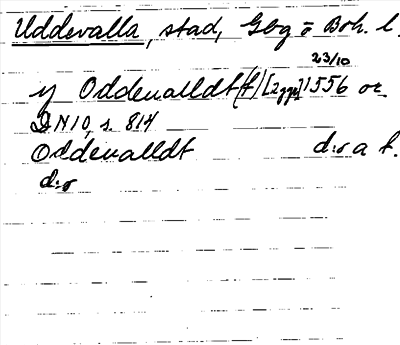 Uddevalla, stad, Gbg o Boh. l.
23/10
y Oddevalldt(t) [2 ggr] 1556 or
DN10, s. 814
Oddevalldt d:o a t.
d:o